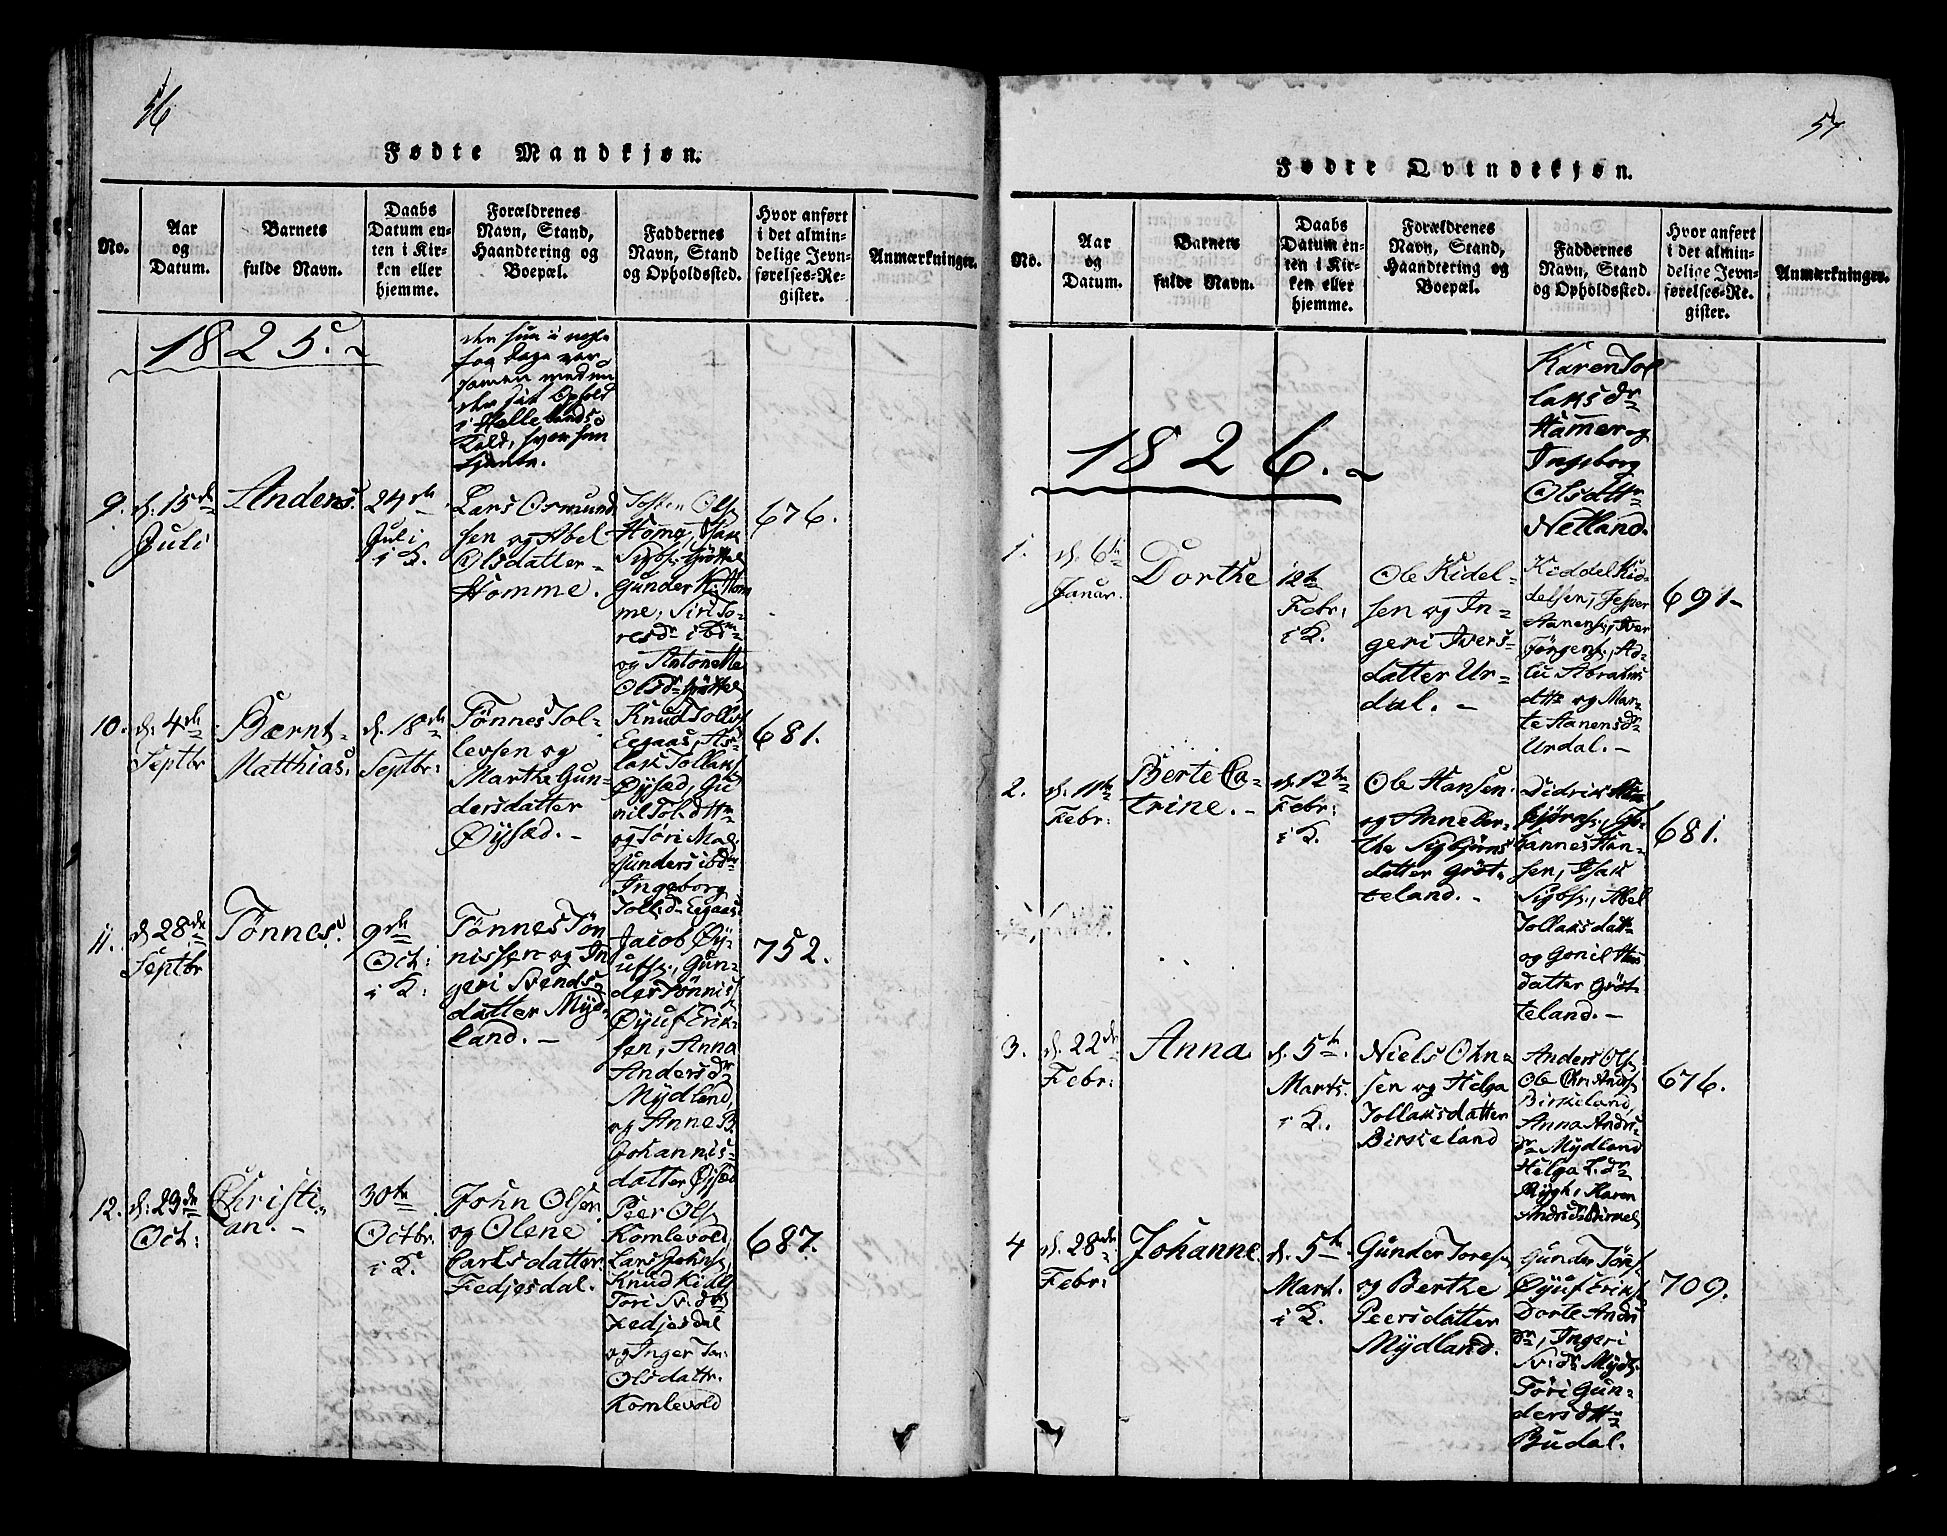 56
Fødte Mandkjøn.
No.
Aar
og
Datum.
Barnets
fulde Navn.
Daabs
Datum en-
ten i Kir-
ken eller
hjemme.
Forældrenes
Navn, Stand,
Haandtering og
Boepæl.
Faddernes
Navn, Stand
og Opholdssted.
Hvor anført
i det almin-
delige Jevn-
førelses-Re-
gister.
Anmærkninger.
1825.
9.
d. 15de
Juli
Anders.
24de
Juli
i K.
Lars Osmund
sen og Abel
Olsdatter
Homme.
676.
10.
d. 4de
Septbr
Bærnt
Matthias.
d. 18de
Septbr:
Tønnes Tol-
levsen og
Marthe Gun-
dersdatter
Øysæd.
Knud Tollefs
Eegaas, As-
lak Tollaks
Øysæd, Gu
nil Tol. dttr
og Tøri Mad
Ingeborg
Tollsd. Eegaas
681.
11.
d. 28de
Septbr
Tønnes.
9de
Oct:
i K.
Tønnes Tøn
nissen og In
geri Svends-
datter Myd-
land.
Jacob Øy-
ufs., Gun-
der Tønnis
Øyuf Erik-
sen, Anna
Andersdr
Mydland,
og Anne B.
Johannis-
datter Øysæd
752.
12.
d. 29de
Oct:
Christi-
an.
30te
Octbr.
i K.
John Olsen
og Olene
Carlsdatter
Fedjesdal.
Peer Ols
Komlevold,
Lars Johns,
Knud Kidls
Tori Sv. dr
Fedjesdal
og Inger
Olsdattr.
Komlevold
687.
57
Fødte Qvindekjøn.
No.
Aar
og
Datum.
Barnets
fulde Navn.
Daabs
Datum en-
ten i Kir-
ken eller
hjemme.
Forældrenes
Navn, Stand,
Haandtering og
Boepæl.
Faddernes
Navn, Stand
og Opholdssted.
Hvor anført
i det almin-
delige Jevn-
førelses-Re-
gister.
Anmærkninger.
Karen Tol
laksdr
Hamer og
Ingborg
Olsdttr
Netland.
1826.
1.
d. 6te
Januar.
Dorthe
12te
Febr:
i K.
Ole Kidel-
sen og In-
geri Ivers-
datter Ur-
dal.
Kiddel Kid-
delsen, Jesper
Hanens., Iver
Jørgens., Ad-
lu Abrahms
dttr og Mar-
te Hanensdr
Urdal.
691
2.
d. 11te
Febr:
Berte Ca-
trine.
d. 12te
Febr:
i K.
Ole Hansen
og Anne Ber-
the Sigbjørns
datter Grøt-
teland.
Didrik
Jo-
hannes Han-
sen, Isak
Sigbs., Abel
Tollaksdatt
og Gonil Hans
datter Grøt-
teland.
681.
3.
d. 22de
Febr:
Anna
d. 5te
Marts
i K.
Niels Ohn
sen og Helga
Tollaksdatter
Birkeland
Anders Ols
Ole Chri. Ands
Birkeland,
Anna Andrs
dr Mydland
Helga L. dr
Rygh, Karen
676.
4
d. 28de
Febr:
Johanne
d. 5te
Mart.
i K.
Gunder Tores
og Berthe
Peersdatter
Mydland.
Gunder Tøns
Øyuf Eriks
Dorte Andrs
dr, Ingeri
Sv. dr Mydl.
Tøri Gun-
dersdttr
Budal.
709.